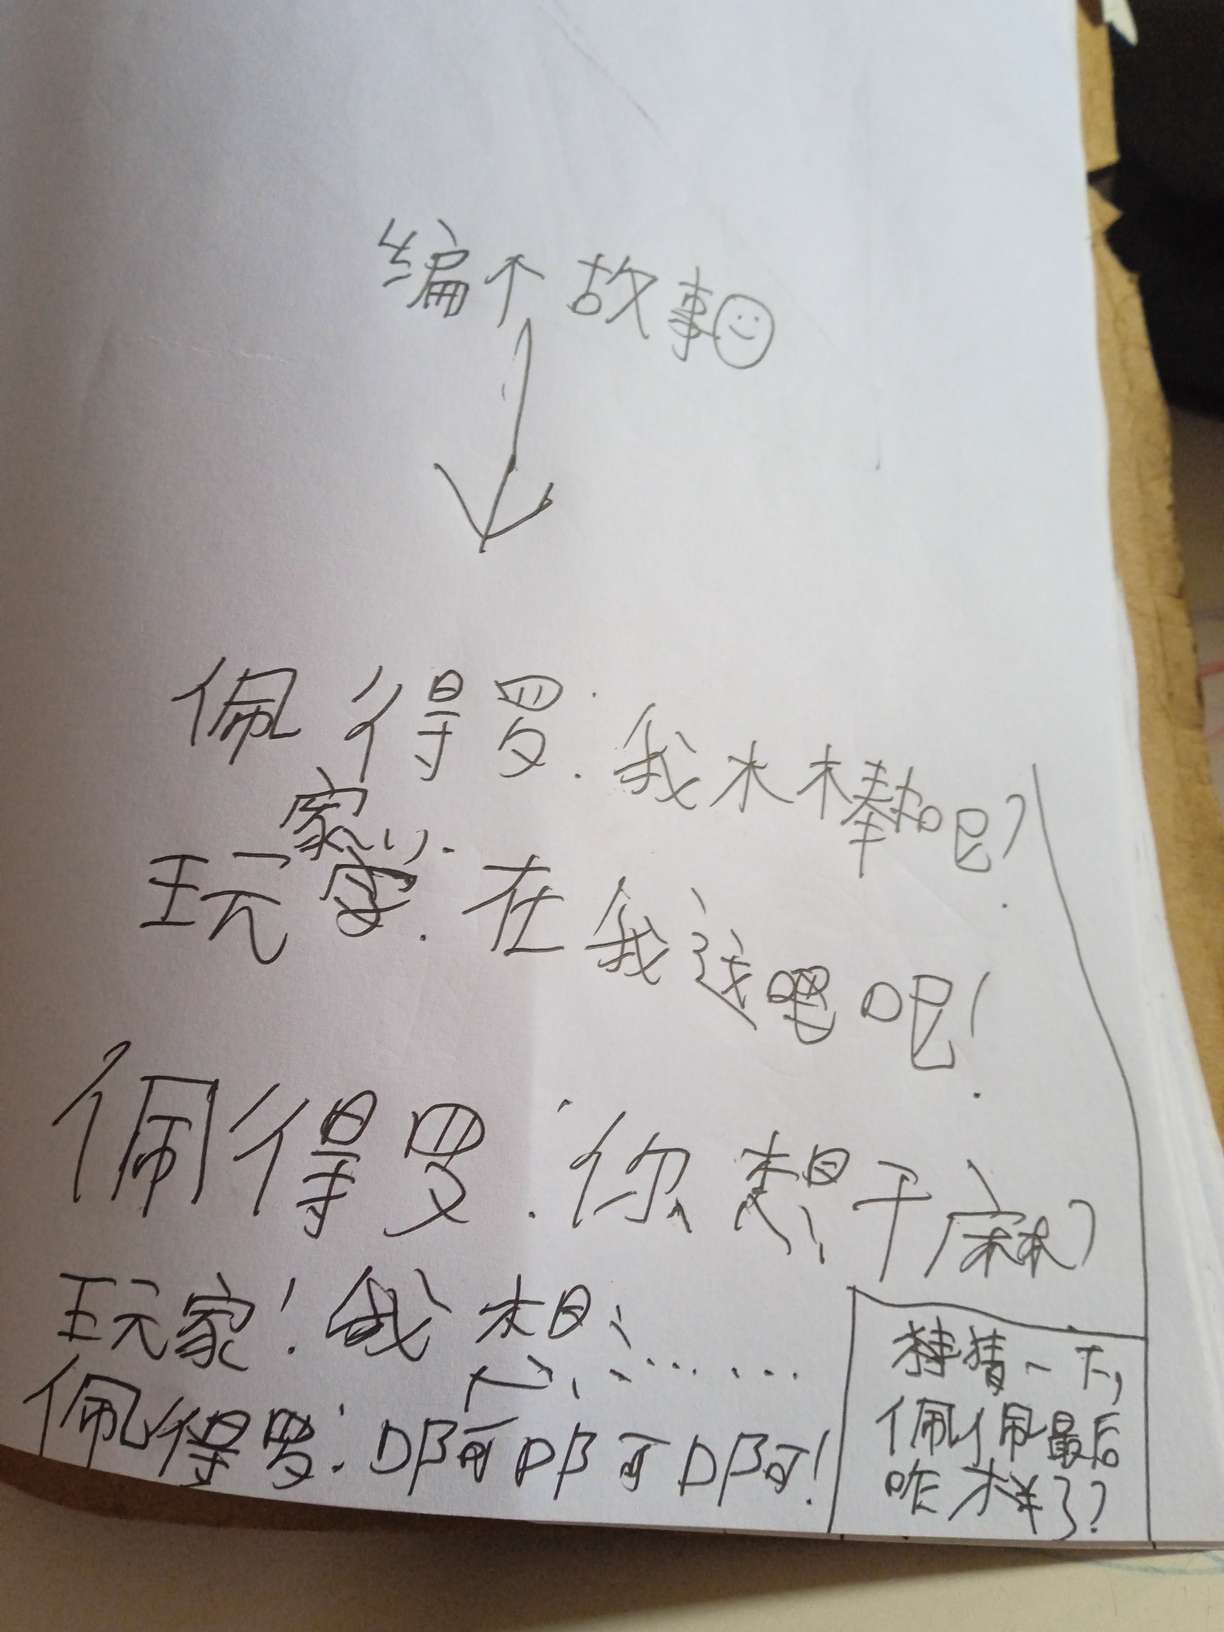 编个故事
佩得罗:我木棒呢?
玩家:在我这呢吧!
佩得罗:你想干麻?
玩家!我想……
佩得罗:啊啊啊!
猜一下,
佩佩最后
咋样了?